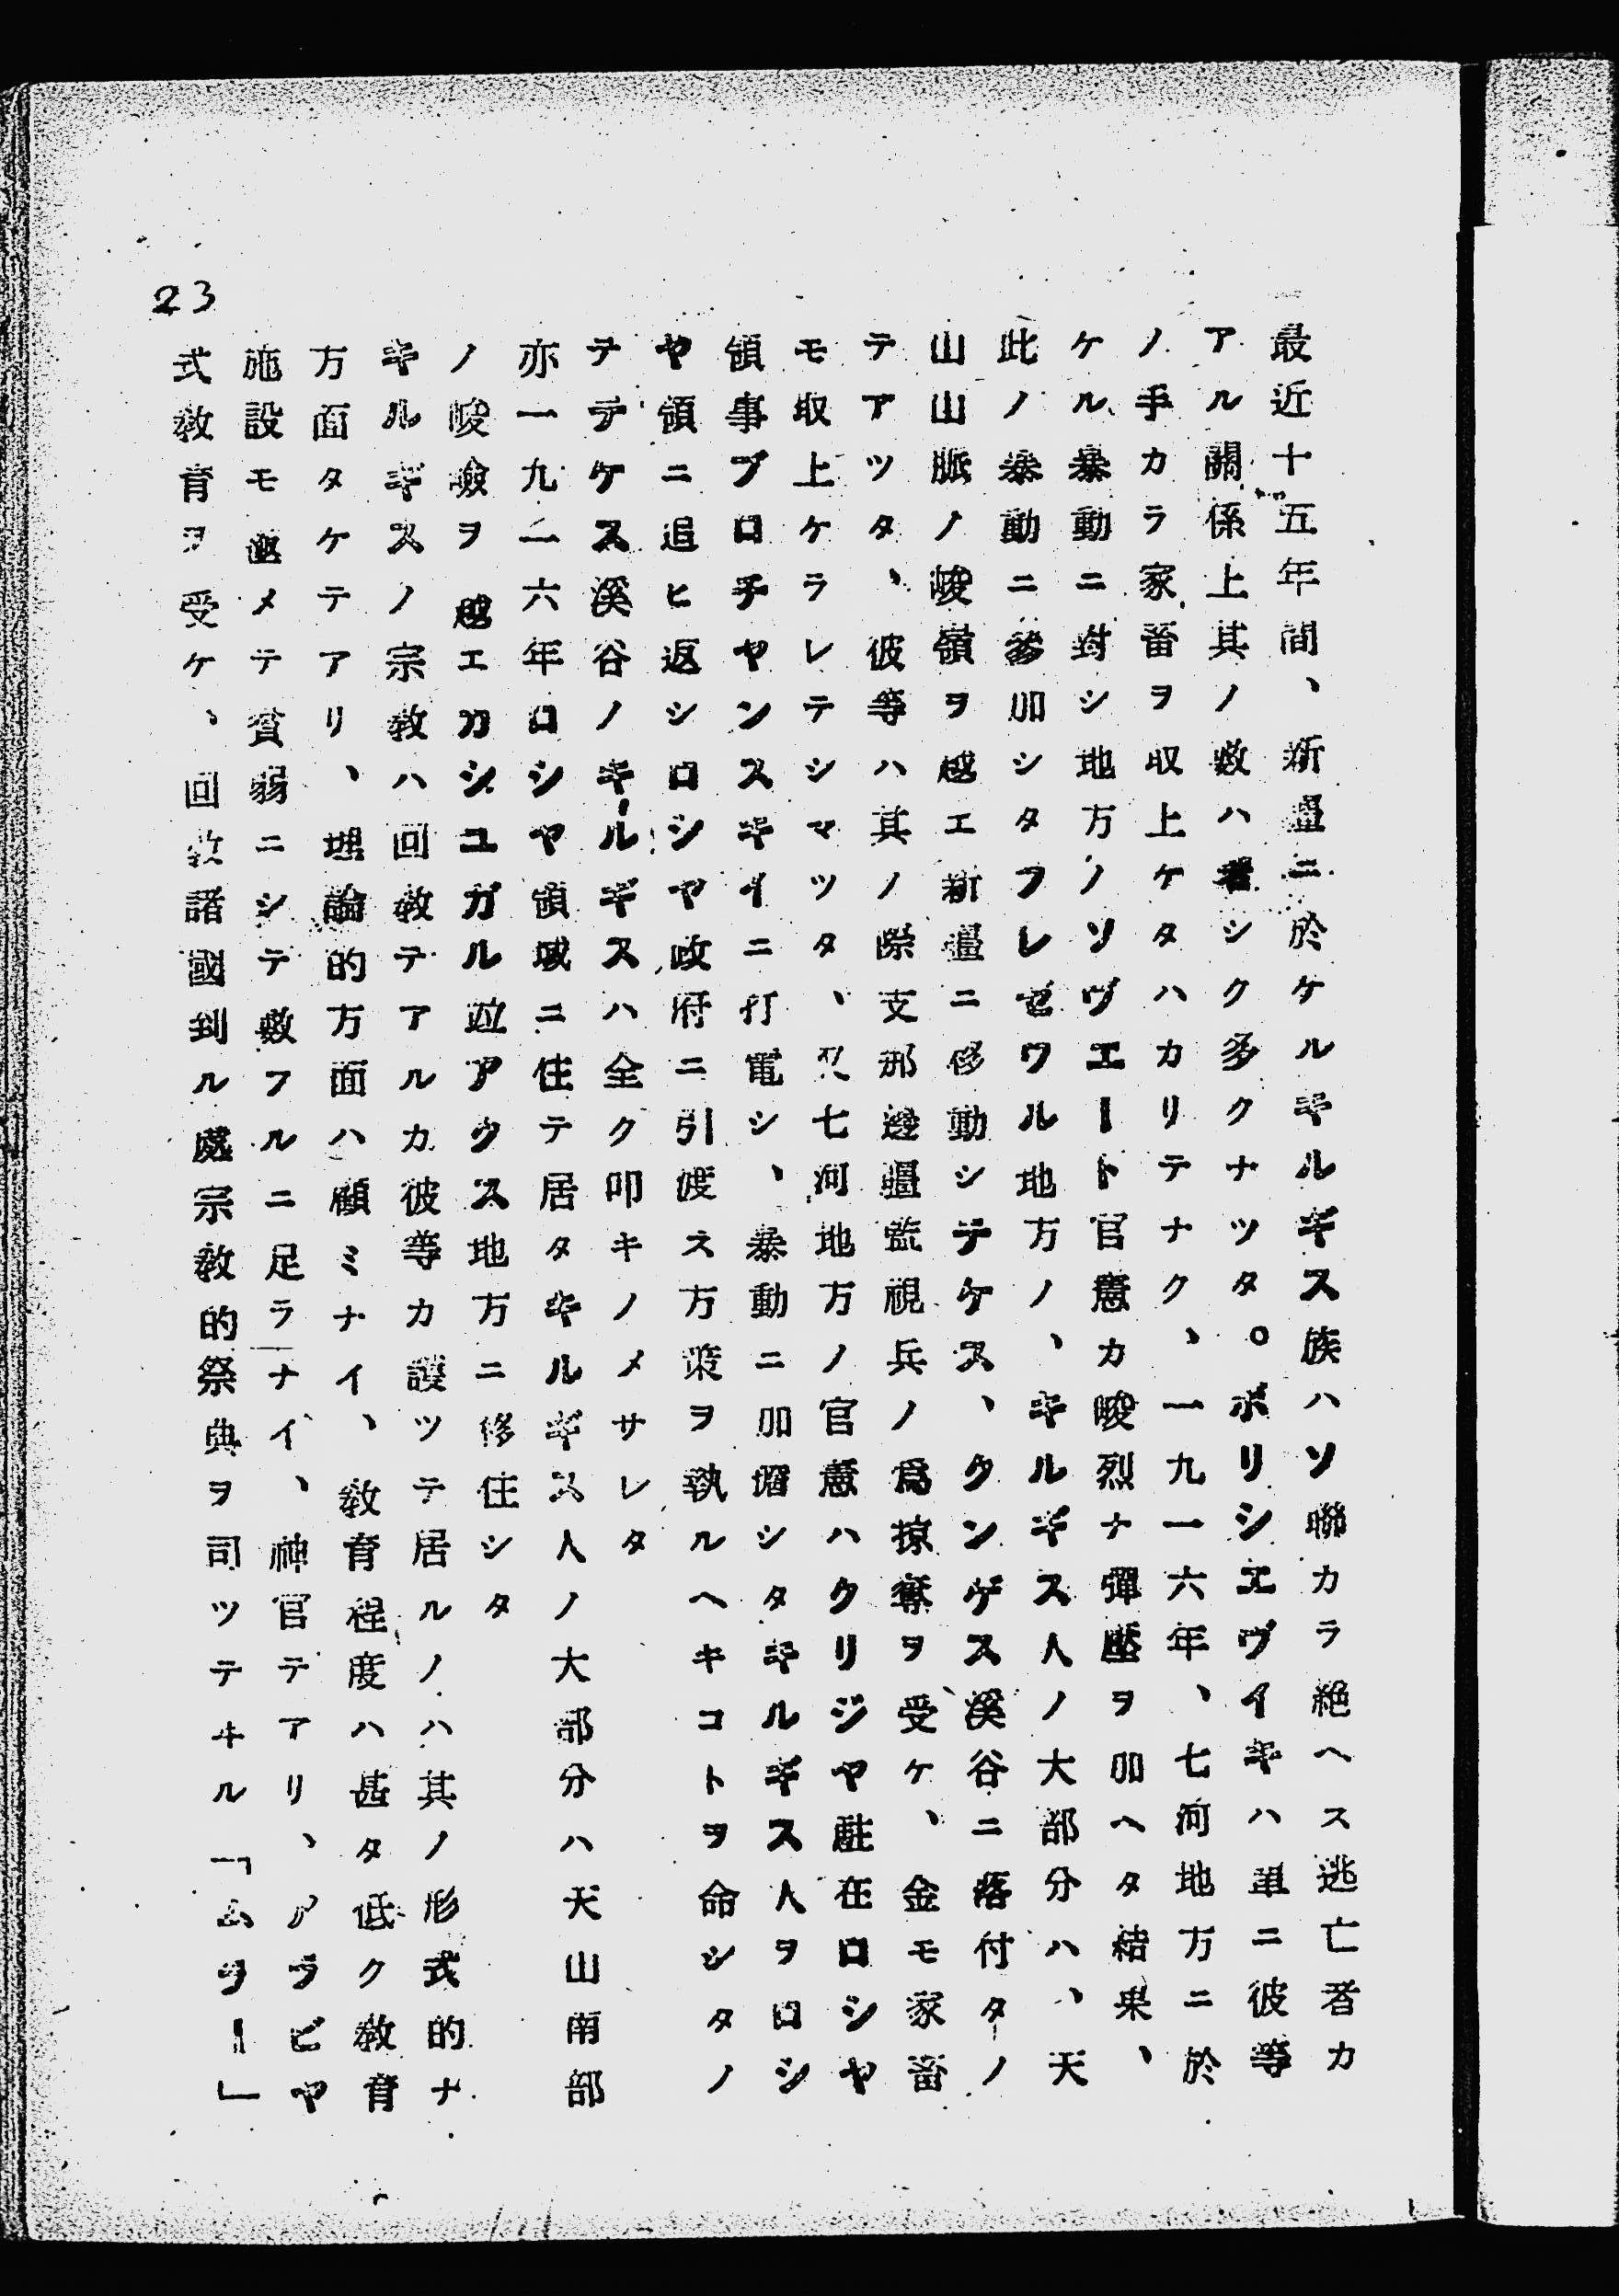 最近十五年間、新疆ニ於ケルキルギス族ハソ聯カラ絶ヘス逃亡者カ
アル關係上其ノ数ハ著シク多クナツタ。ボリシエヴイキハ單ニ彼等
ノ手カラ家畜ヲ収上ケタハカリテナク、一九一六年、七河地方ニ於
ケル暴動ニ対シ地方ノソヴエート官憲カ峻烈ナ彈壓ヲ加ヘタ結果、
此ノ暴動ニ參加シタフレゼワル地方ノ、キルギス人ノ大部分ハ、天
山山脈ノ峻嶺ヲ越エ新疆ニ移動シテケス、クンゲス溪谷ニ落付タノ
テアツタ、彼等ハ其ノ際支那邊疆監視兵ノ爲掠奪ヲ受ケ、金モ家畜
モ取上ケラレテシマツタ、又七河地方ノ官憲ハクリジヤ駐在ロシヤ
領事ブロチヤンスキイニ打電シ、暴動ニ加擔シタキルギス人ヲロシ
ヤ領ニ追ヒ返シロシヤ政府ニ引渡ス方策ヲ執ルヘキコトヲ命シタノ
テテケス溪谷ノキルギスハ全ク叩キノメサレタ
亦一九二六年ロシヤ領域ニ住テ居タキルギス人ノ大部分ハ天山南部
ノ峻嶮ヲ越エカシユガル竝アクス地方ニ移住シタ
キルギスノ宗教ハ回教テアルカ彼等カ護ツテ居ルノハ其ノ形式的ナ
方面タケテアリ、理論的方面ハ顧ミナイ、教育程度ハ甚タ低ク教育
施設モ極メテ貧弱ニシテ数フルニ足ラナイ、神官テアリ、アラビヤ
式教育ヲ受ケ、回教諸國到ル處宗教的祭典ヲ司ツテヰル「ムラー」
23